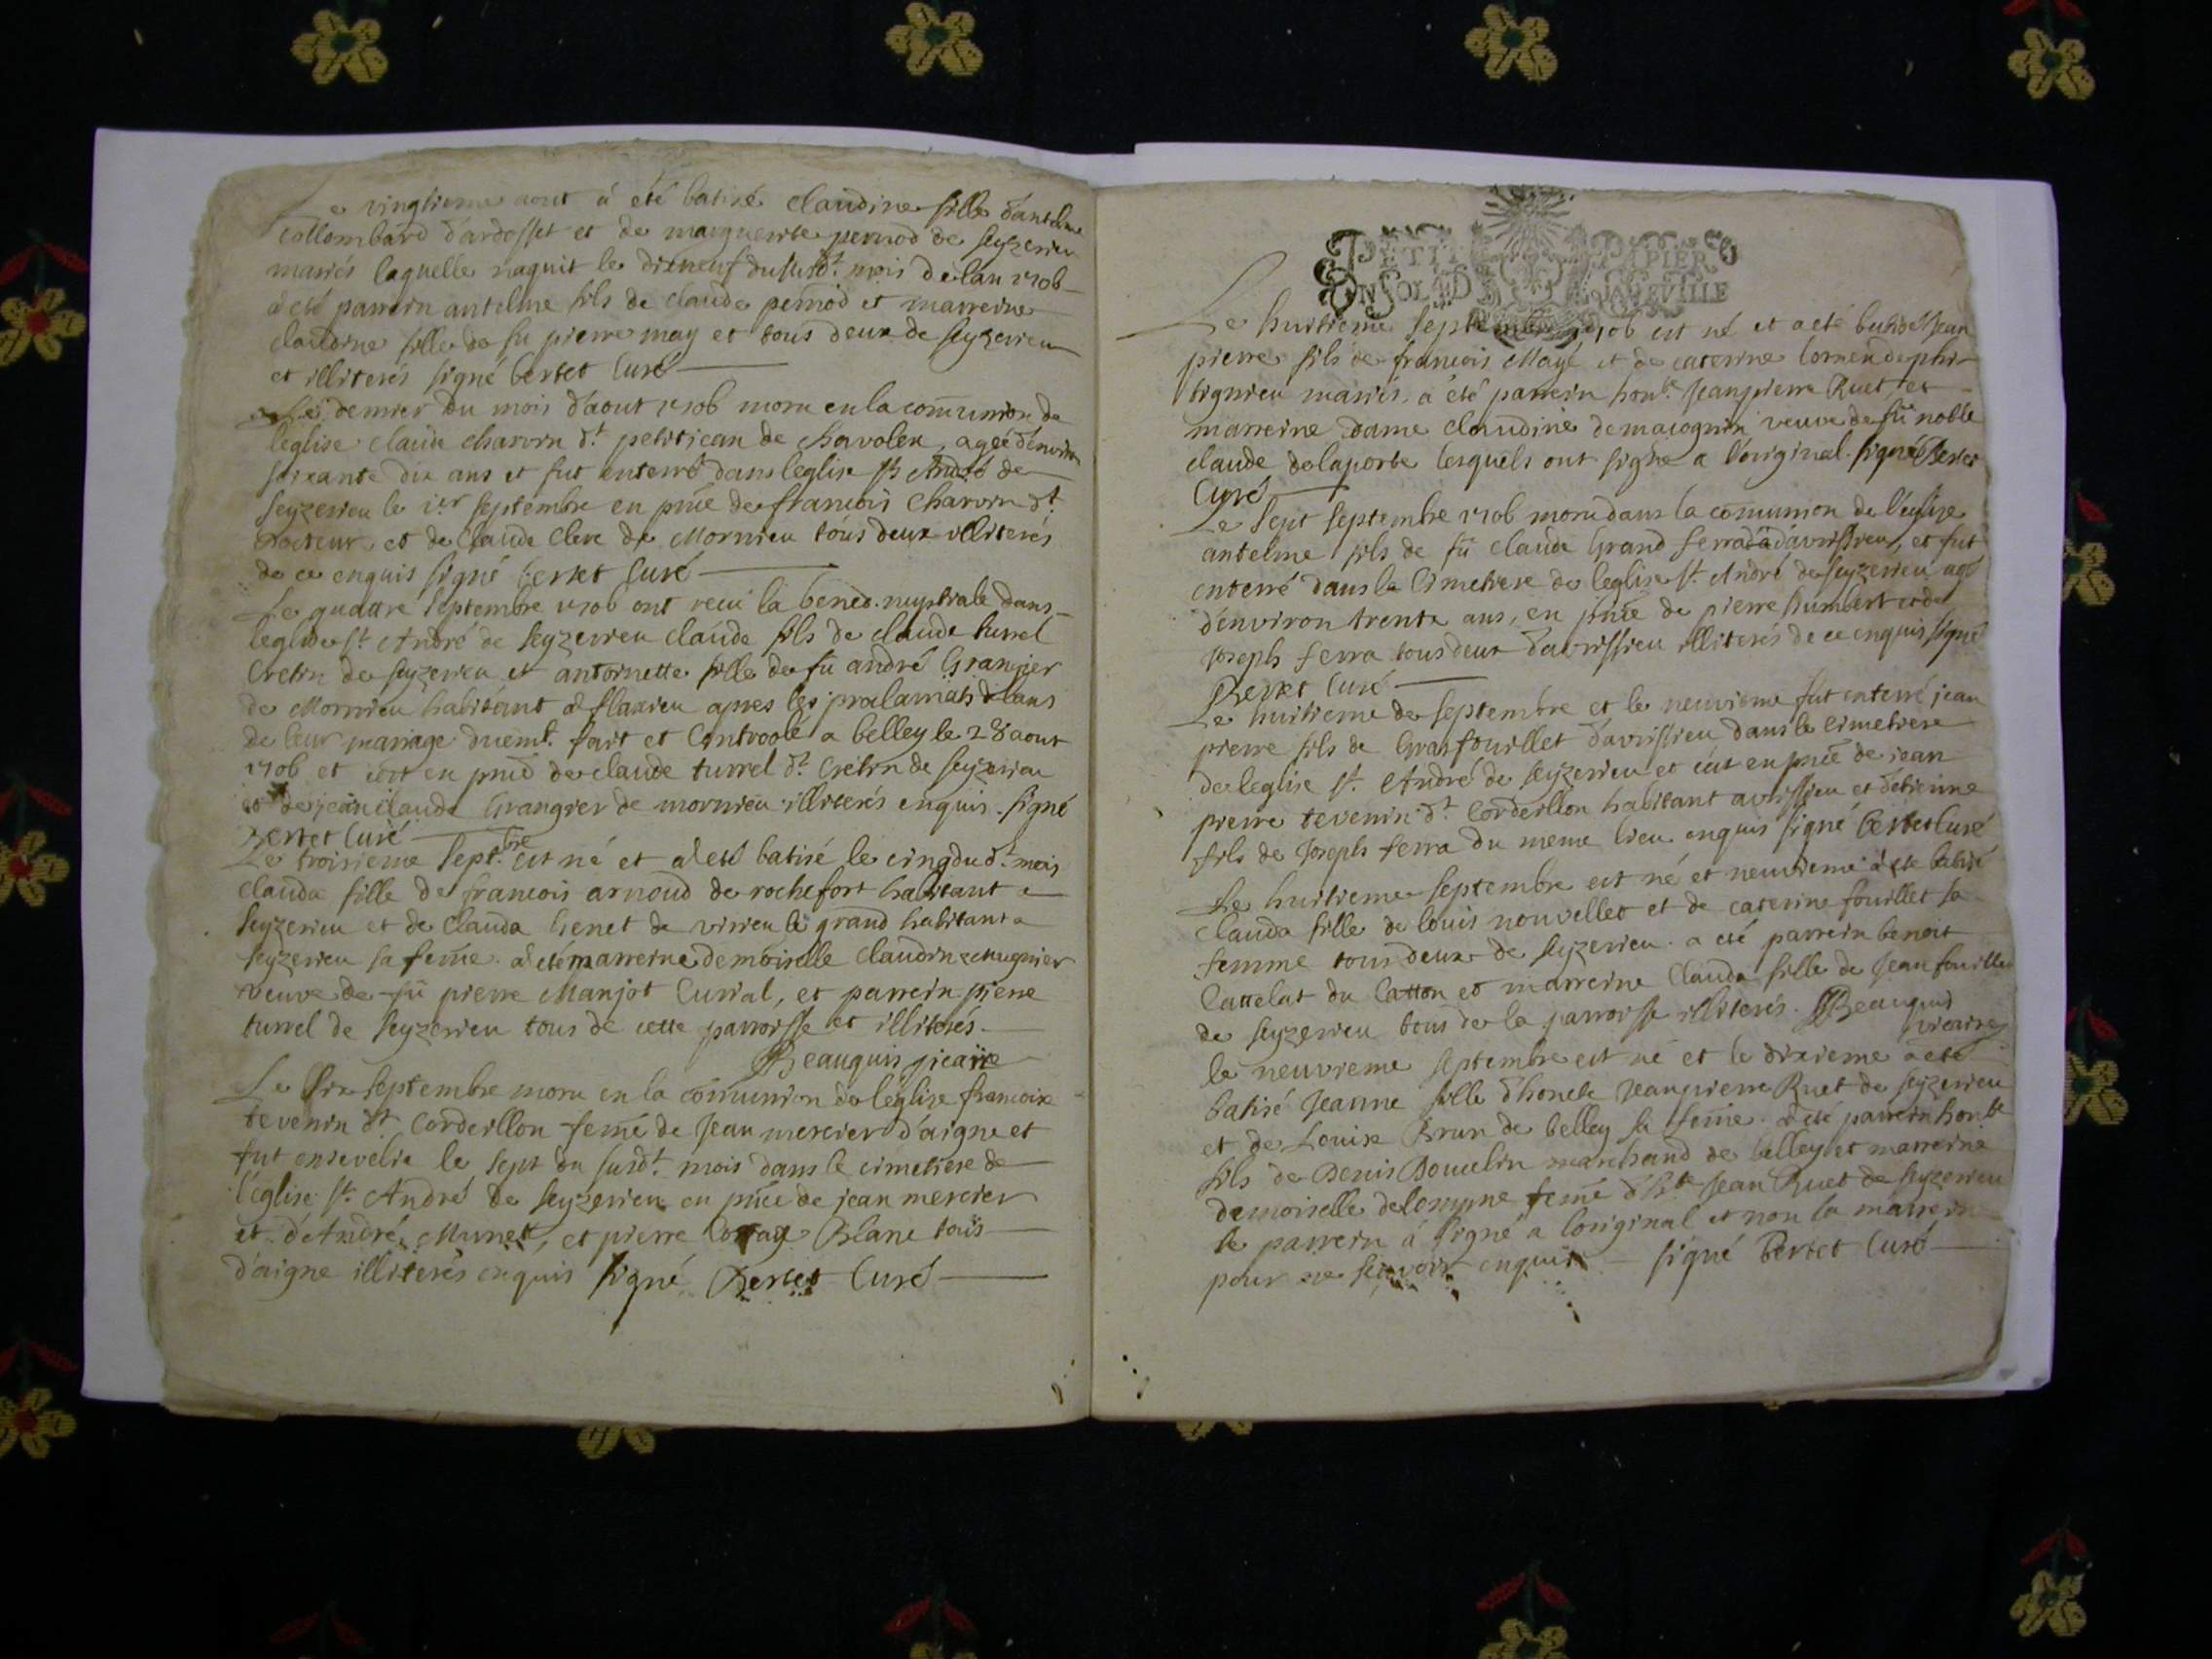 Le vingtieme aout à été batisé claudine fille d'antelme
collombard d'ardosset et de marguerite pernod de seyzerieu
mariés laquelle naquit le dixneuf du susdt. mois de lan 1706
à eté parrein antelme fils de claude pernod et marreine
claudine fille de fu pierre may et tous deux de seyzerieu
et illiterés signé bertet Curé
Le dernier du mois d'aout 1706 moru en la com̃union de
l'eglise claude charvin dt. petitjean de chavolex, ageé d'environ
soixante dix ans et fut enterré dans l'eglise St André de
seyzerieu le 1er septembre en pñce de francois Charvin dt.
et de Claude Clere de Mornieu tous deux illiterés
de ce enquis signé bertet Curé
Le quattre septembre 1706 ont recu la bened. nuptiale dans
leglise St. André de seyzerieu claude fils de claude turrel
Cretin de seyzerieu et antoinette fille de fu andré Grangier
de Mornieu habitant à flaxieu apres les proclamats
de leur mariage duemt. fait et Controolé a belley le 28 aout
1706 et en pñce de claude turrel dt. Cretin de seyzerieu
et de jean claude Grangier de mornieu illiterés enquis. signé
bertet Curé
Le troisieme septbre. est né et a eté batisé le cinq du dt. mois
clauda fille de francois arnoud de rochefort habitant a
seyzerieu et de Clauda Genet de virieu le grand habitant a
seyzerieu sa fem̃e. a eté marreine demoiselle claudine
veuve de fu pierre Manjot Curial, et parrein pierre
turrel de seyzerieu tous de cette parroisse et illiterés.
Beauguis vicaire
Le six septembre moru en la com̃union de leglise francoise
tevenin dt. Cordeillon fem̃e de Jean mercier d'aigne et
fut ensevelie le sept du susdt. mois dans le cimetiere de
l'eglise St. André de seyzerieu en pñce de jean mercier
et d'André Munet, et pierre Blanc tous
d'aigne illiterés enquis signé Bertet Curé
PETIT PAPIER
UN SOL 4 D LA FEVILLE
Le huitieme septembre 1706 est né et a eté batisé Jean
pierre fils de francois Mayé et de caterine de phi-
tignieu mariés, a été parrein honble. Jeanpierre Ruet, et
marreine dame claudine demacognin veuve de fu noble
claude delaporte lesquels ont signé a l'original. signé Bertet
Curé
Le sept septembre 1706 moru dans la com̃union de l'eglise
antelme fils de fu claude Grand ferra d'avrissieu, et fut
enterré dans le Cimetiere de leglise St. André de seyzerieu agé
d'environ trente ans, en pñce de pierre humbert et de
Joseph ferra tous deux d'avrissieu illiterés de ce enquis signé
Bertet Curé
Le huitieme de septembre et le neuvieme fut enterré jean
pierre fils de Gras fouillet d'avrissieu dans le Cimetiere
de leglise St. André de seyzerieu et en pñce de jean
pierre tevenin dt. Cordeillon habitant avrissieu et d'etienne
fils de Joseph ferra du meme lieu enquis signé Bertet Curé
Le huitieme septembre est né et neuvieme a eté batisé
clauda fille de louis nouvellet et de caterine fouillet sa
femme tous deux de seyzerieu. a eté parrein benoit
Cattelat du Catton et marreine Clauda fille de Jean fouillet
de seyzerieu tous de la parroisse illiterés. Beauguis
vicaire
le neuvieme septembre est né et le dixieme a eté
batisé Jeanne fille d'honete Jeanpierre Ruet de seyzerieu
et de Louise Brun de belley sa fem̃e. a eté parrein honble
fils de Denis Douvelin marchand de belley et marreine
demoiselle fem̃e d'hte Jean Ruet de seyzerieu
le parrein à signé a l'original et non la marreine
pour ne sçavoir enquis. signé Bertet Curé